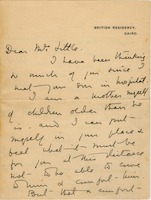 BRITISH RESIDENCY,
CAIRO.
Dear Mrs Little.
I have been thinking
so much of you since I
met your son in hospital
I am a mother myself
of children older than he
is. and I can put
myself in your place &
feel what it must be
for you at this distance
not to be able to come
to him & comfort him
But that a comfort-